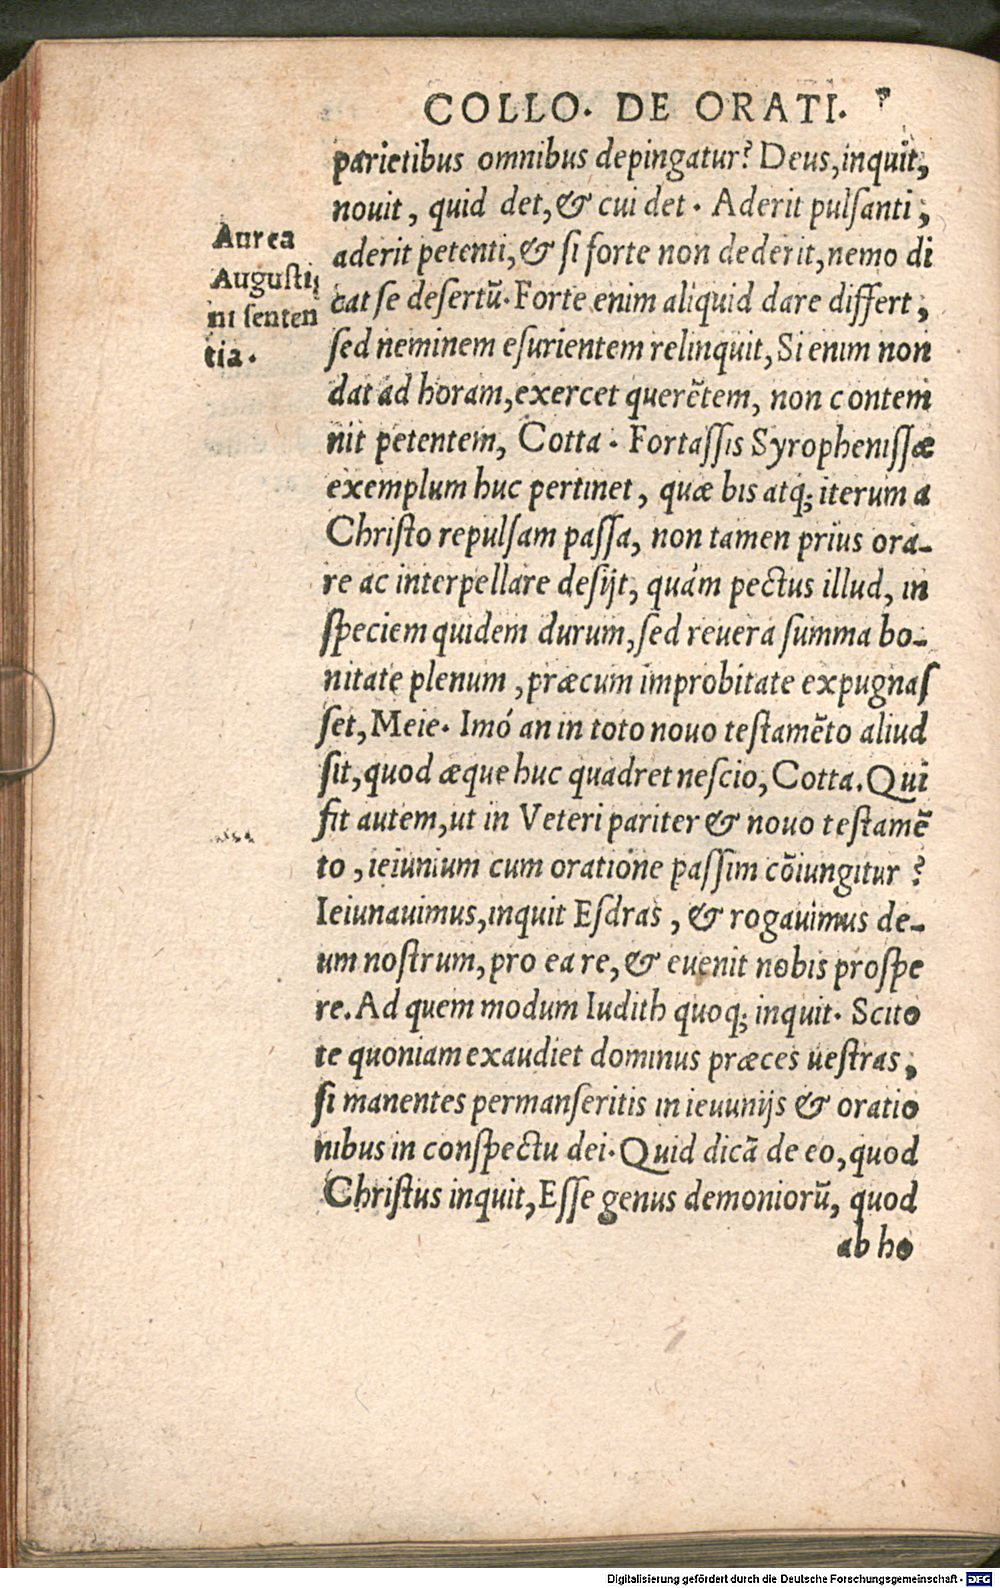 COLLO. DE ORATI.
parietibus omnibus depingatur? Deus, inquit,
nouit, quid det, & cui det. Aderit pulſanti,
aderit petenti, & ſi forte non dederit, nemo di
cat ſe deſertū. Forte enim aliquid dare differt,
ſed neminem eſurientem relinquit, Si enim non
dat ad horam, exercet querētem, non contem
nit petentem, Cotta. Fortaſſis Syropheniſſæ
exemplum huc pertinet, quæ bis atq; iterum a
Chriſto repulſam paſſa, non tamen prius ora-
re ac interpellare deſijt, quám pectus illud, in
ſpeciem quidem durum, ſed reuera ſumma bo-
nitate plenum, præcum improbitate expugnaſ
ſet, Meie. Imó an in toto nouo teſtamēto aliud
ſit, quod æque huc quadret neſcio, Cotta. Qui
fit autem, ut in Veteri pariter & nouo teſtamē
to, ieiunium cum oratione paſſim cōiungitur?
Ieiunauimus, inquit Eſdras, & rogauimus de-
um noſtrum, pro ea re, & euenit nobis proſpe
re. Ad quem modum Iudith quoq; inquit. Scito
te quoniam exaudiet dominus præces ueſtras,
ſi manentes permanſeritis in ieuunijs & oratio
nibus in conſpectu dei. Quid dicā de eo, quod
Chriſtus inquit, Eſſe genus demoniorū, quod
ab ho
Aurea
Auguſti
ni ſenten
tia.
Digitalisierung gefördert durch die Deutsche Forschungsgemeinschaft - DFG